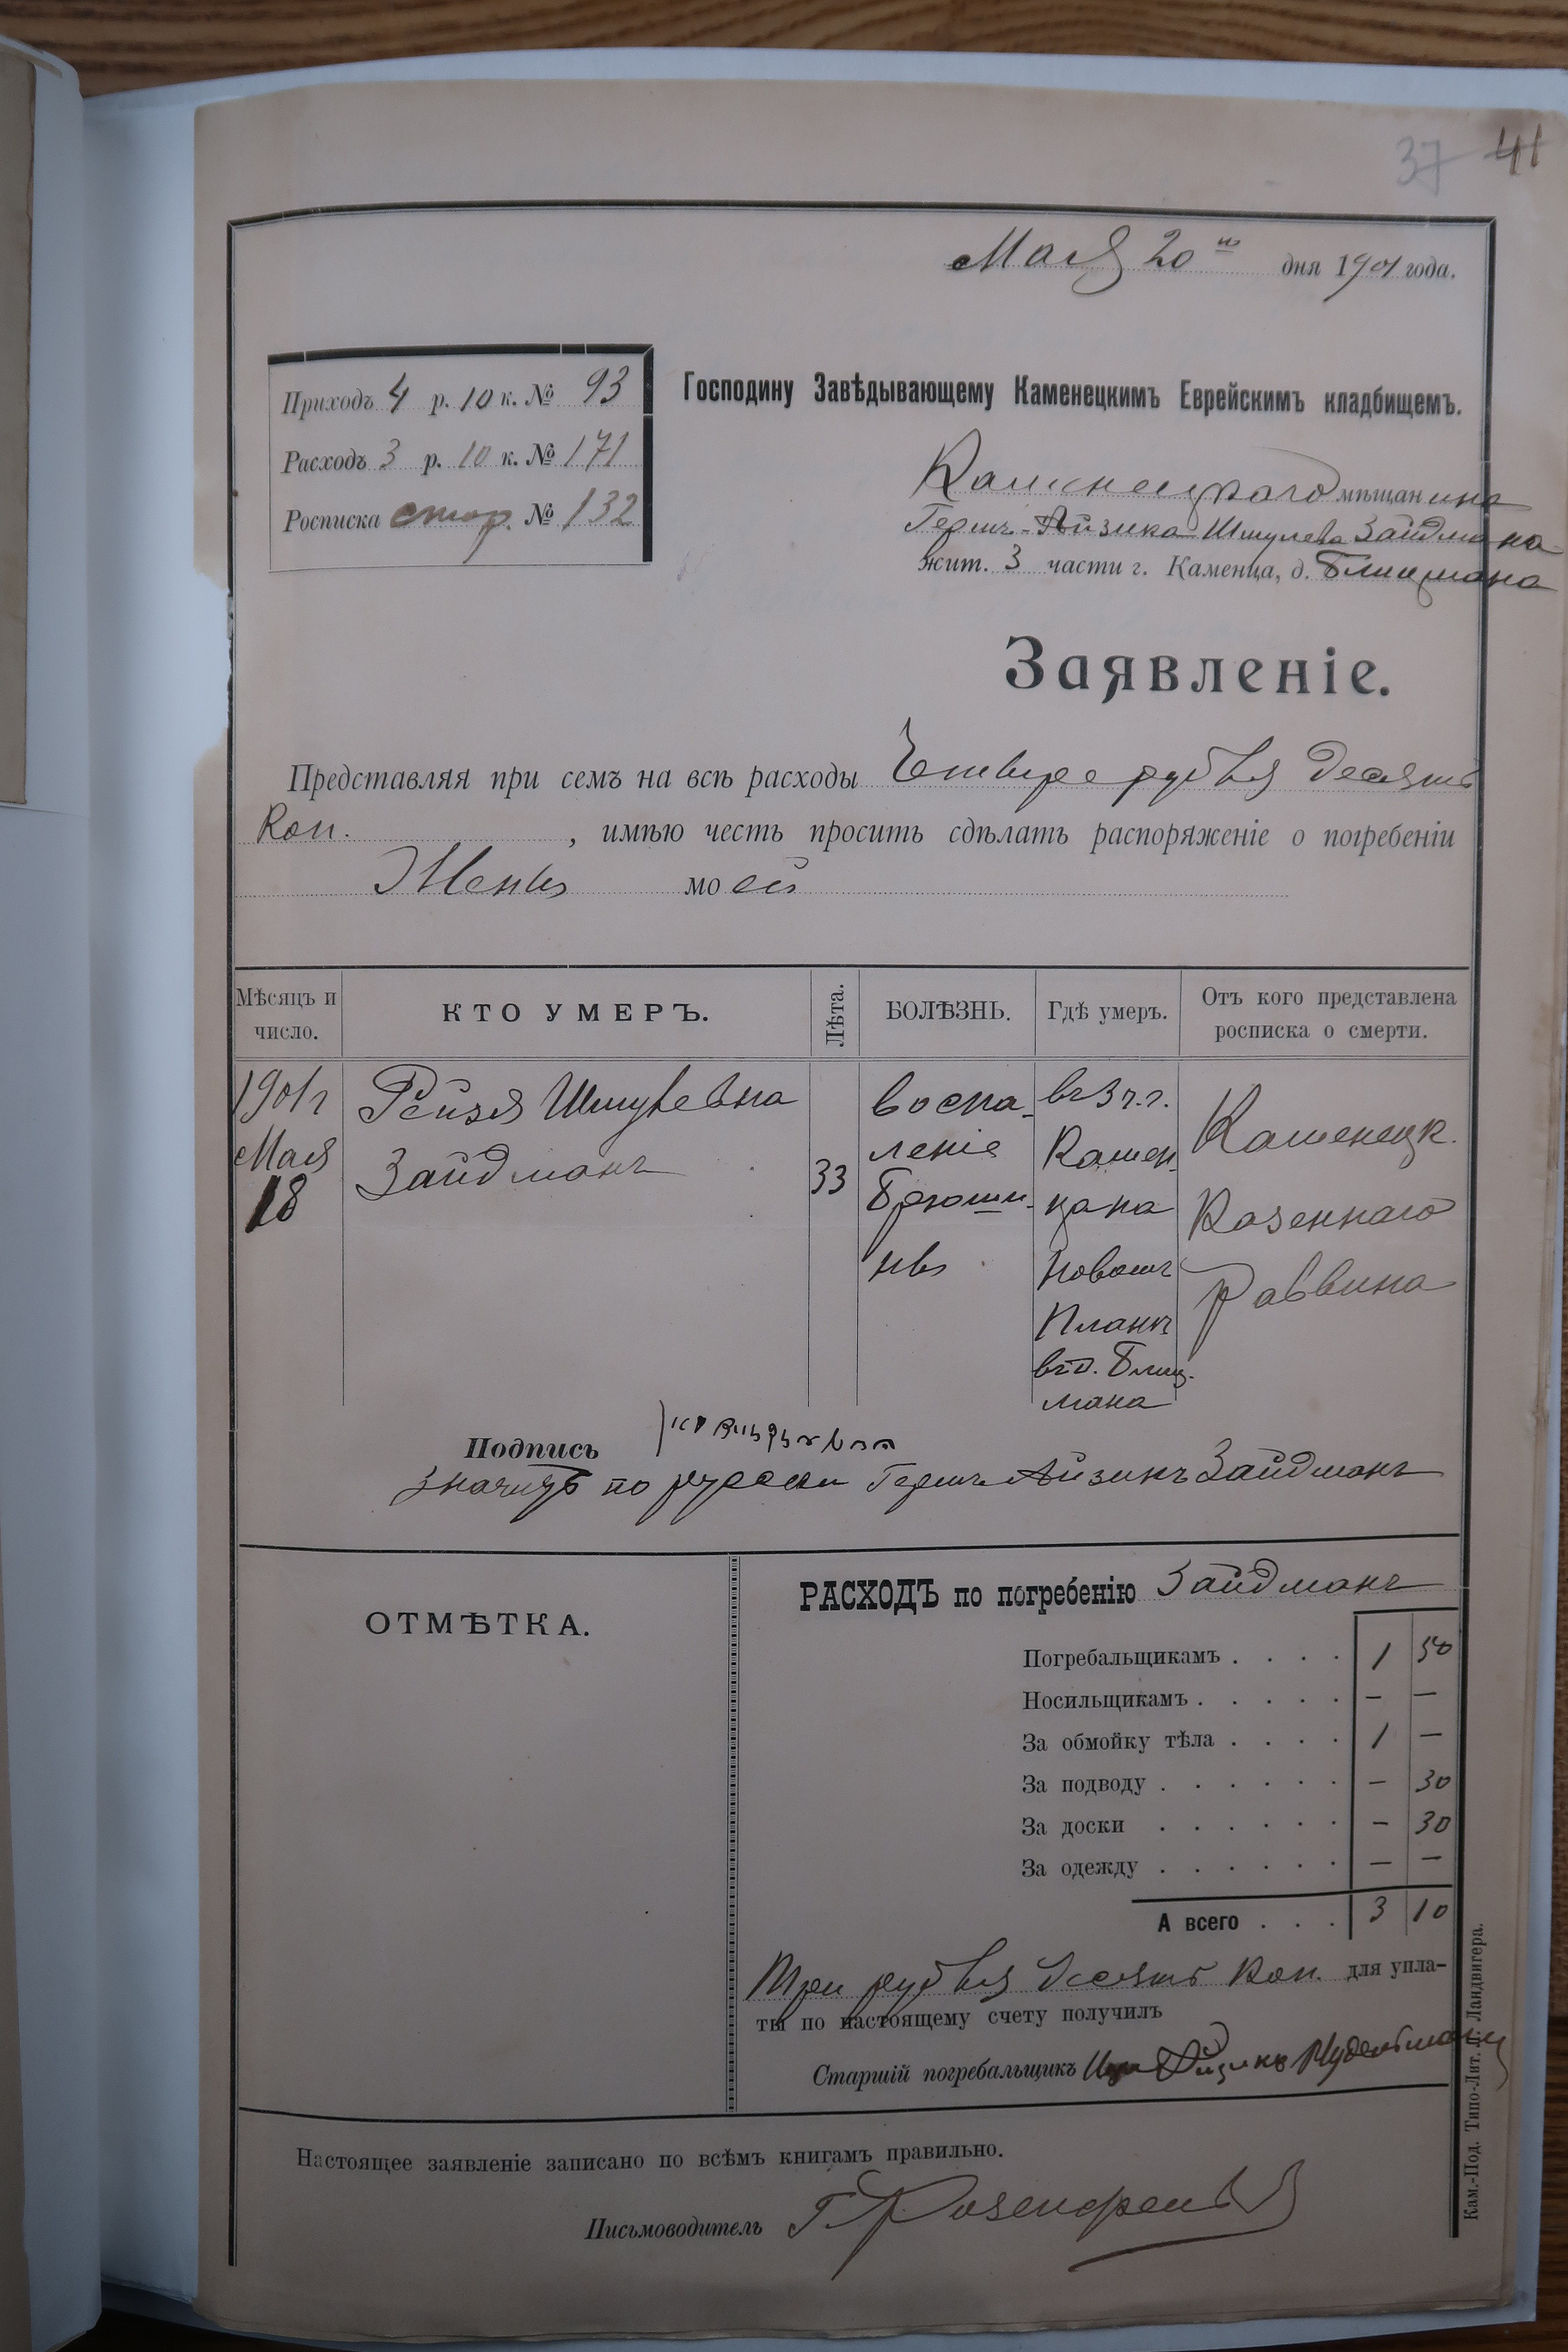 37 41
Мая 20го дня 1901 года.
Приходъ 4 р. 10 к. № 93
Расходъ 3 р. 10 к. № 171
Росписка стор. № 132
Господину Завѣдывающему Каменецкимъ Еврейскимъ кладбищемъ.
Каменецкаго мѣщанина
Гершъ-Айзика Шмулева Зайдмана
жит. 3 части г. Каменца, д. Блицмана
Заявленіе.
Представляя при семъ на всѣ расходы Четыре рубля десять
Коп. , имѣю честь просить сдѣлать распоряженіе о погребеніи
Жены моей
Мѣсяцъ и число.
КТО УМЕРЪ.
Лѣта.
БОЛѢЗНЬ.
Гдѣ умеръ.
Отъ кого представлена росписка о смерти.
1901 г
Мая
18
Рейзя Шмулевна
Зайдманъ
33
воспа-
леніе
брюши-
ны
въ 3 ч. г.
Камен-
ца на
Новомъ
Планѣ
въ д. Блиц-
мана
Каменецк.
Казеннаго
Раввина
Подпись
значитъ по русски Гершъ Айзикъ Зайдманъ
ОТМѢТКА.
РАСХОДЪ по погребенію Зайдманъ
Погребальщикамъ . . . . 1 50
Носильщикамъ . . . . . — —
За обмойку тѣла . . . . 1 —
За подводу . . . . . . — 30
За доски . . . . . . — 30
За одежду . . . . . . — —
А всего . . . 3 10
Три рубля десять Коп. для упла-
ты по настоящему счету получилъ
Старшій погребальщикъ
Настоящее заявленіе записано по всѣмъ книгамъ правильно.
Письмоводитель Г. Розенфельд
Кам.-Под. Типо-Лит. Л. Ландвигера.